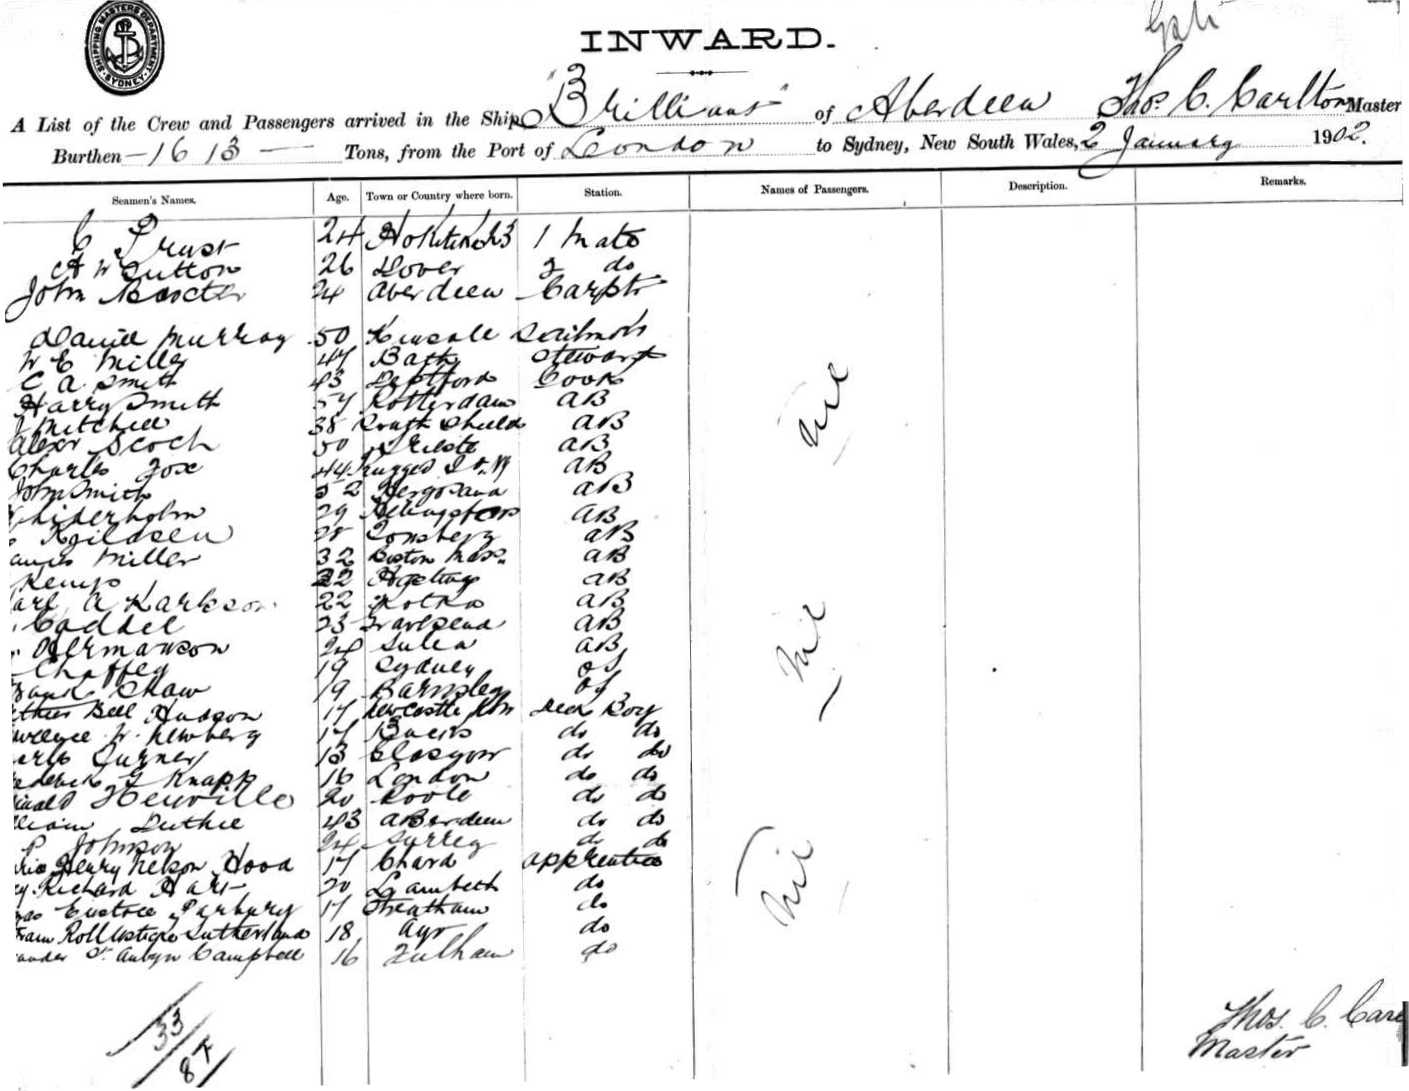 SHIPPING MASTERS DEPARTMENT SYDNEY
INWARD.
A List of the Crew and Passengers arrived in the Ship "Brilliant" of Aberdeen Thos. C. Carlton Master
Burthen - 1613 - Tons, from the Port of London to Sydney, New South Wales, 2 January 1902.
Seamen's Names. Age. Town or Country where born. Station. Names of Passengers. Description. Remarks.
C Prust 24 1 Mate
A W Sutton 26 Dover 2 do
John Baxter 24 Aberdeen Carptr
Daniel Murray 50 Kinsale
W E Miller 47 Bath Steward
C A Smith 43 Deptford Cook
Harry Smith 54 Rotterdam AB
Mitchell 38 South Shields AB
Alexr Scoch 50 Trieste AB
Charles Fox 44 AB
John Smith 52 AB
29 AB
28 Tonsberg AB
Miller 32 Boston Mass. AB
Kemp 22 Hastings AB
A Karlson 22 Kotka AB
Caddel 23 Gravesend AB
Hermanson 24 Lulea AB
Chaffey 19 Sydney OS
Shaw 19 Barnsley OS
Bell Hudson 17 Newcastle Deck Boy
W. Newberg 17 Bucks do do
Turner Glasgow do do
G Knapp 16 London do do
Neuville 20 Poole do do
Luthie 43 Aberdeen do do
P Johnson 24 Surrey do do
Henry Nelson Hood 17 Chard apprentice
Richard Hart 20 Lambeth do
Eustace Parbury 17 Streatham do
Sutherland 18 Ayr do
St. Aubyn Campbell 16 Fulham do
Nil
Nil
Nil
33
87
Thos. C. Carl
Master